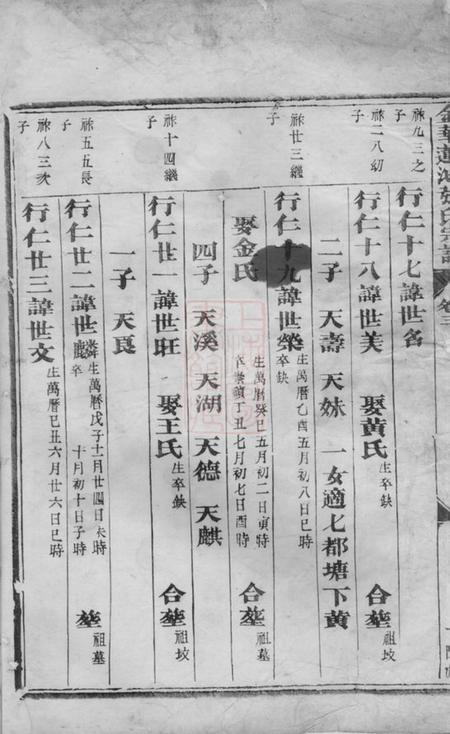 金華蓮池張氏宗譜 卷三
祿九三之子
行仁十七諱世名
祿二八幼子
行仁十八諱世美 娶黃氏 生卒缺 合塟 祖坟
二子 天壽 天妹 一女適七都塘下黃
祿廿三繼子
行仁十九諱世榮 生萬曆乙酉五月初八日巳時 卒缺
娶金氏 生萬曆癸巳五月初二日寅時 卒崇禎丁丑七月初七日酉時 合塟 祖墓
四子 天溪 天湖 天德 天麒
祿十四繼子
行仁廿一諱世旺 娶王氏 生卒缺 合塟 祖坟
一子 天良
祿五五長子
行仁廿二諱世麟 生萬曆戊子十二月廿四日未時 卒 十月初十日子時 塟 祖墓
祿八三次子
行仁廿三諱世文 生萬曆己丑六月廿六日巳時